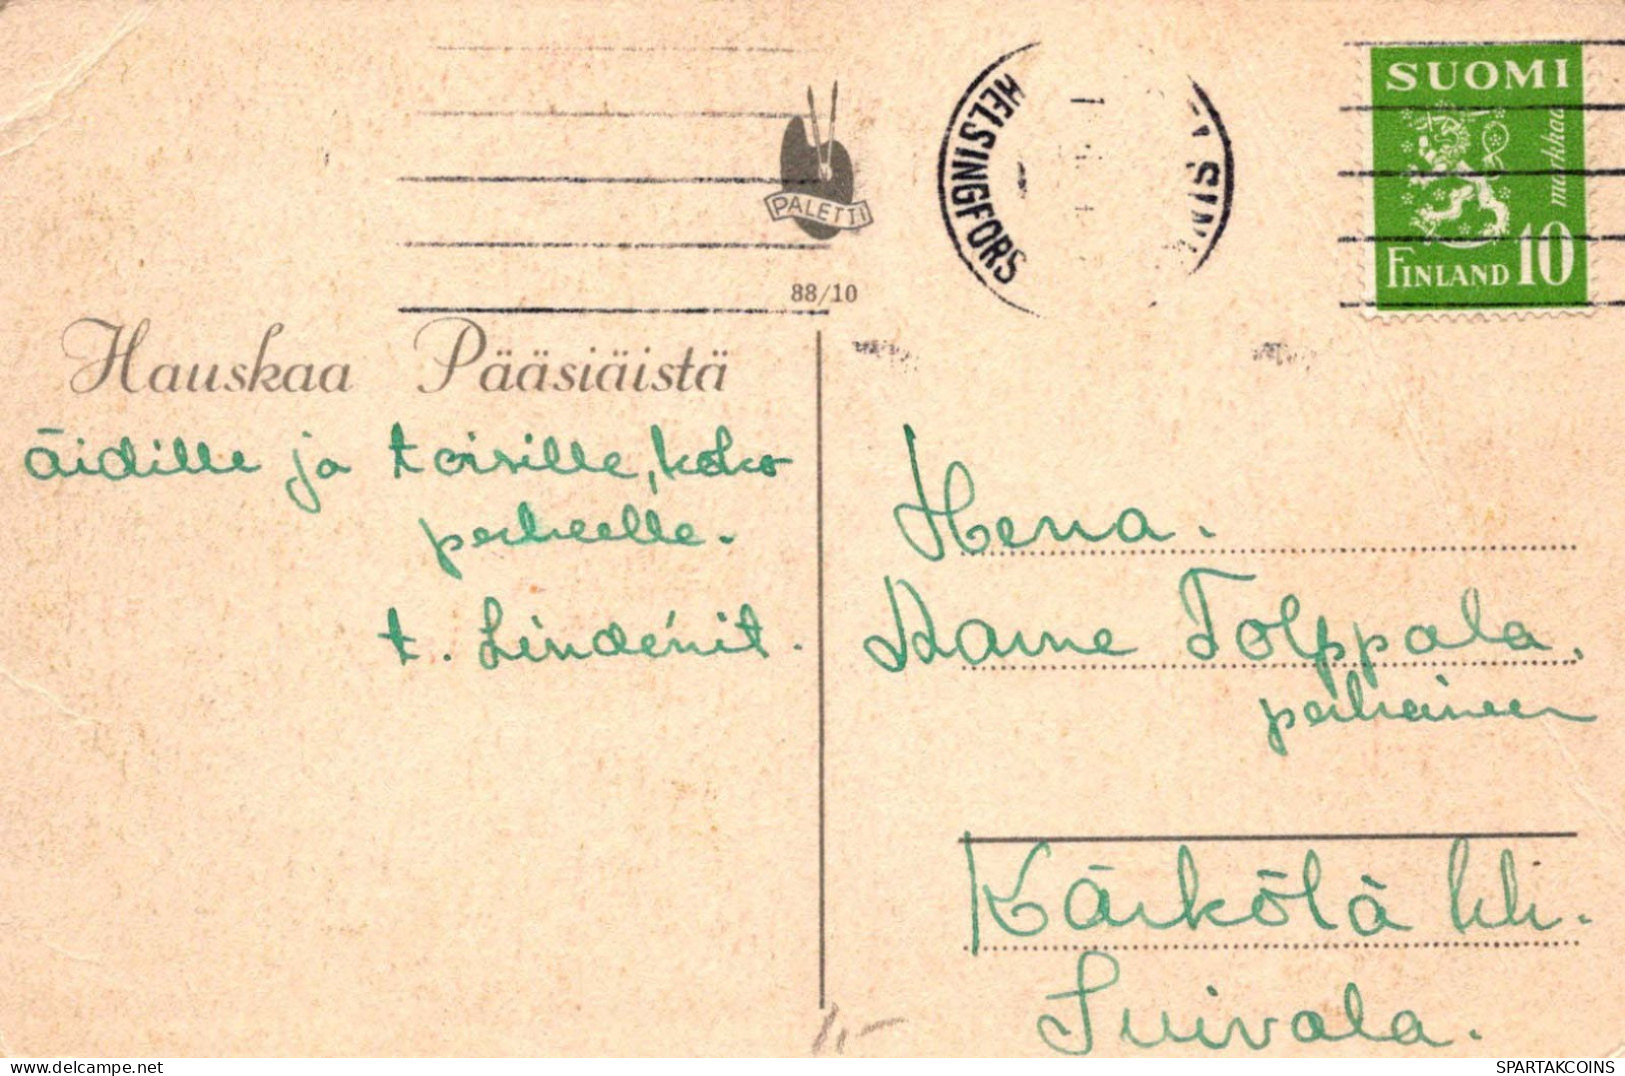 PALETTI
88/10
HELSINGFORS
SUOMI
markkaa
FINLAND 10
Hauskaa Pääsiäistä
äidille ja toisille, koko
perheelle.
t. Lindénit.
Herra.
Aarne Tolppola.
perheineen
Kärkölä kk.
Suivala.
1,-
SPARTAKCOINS